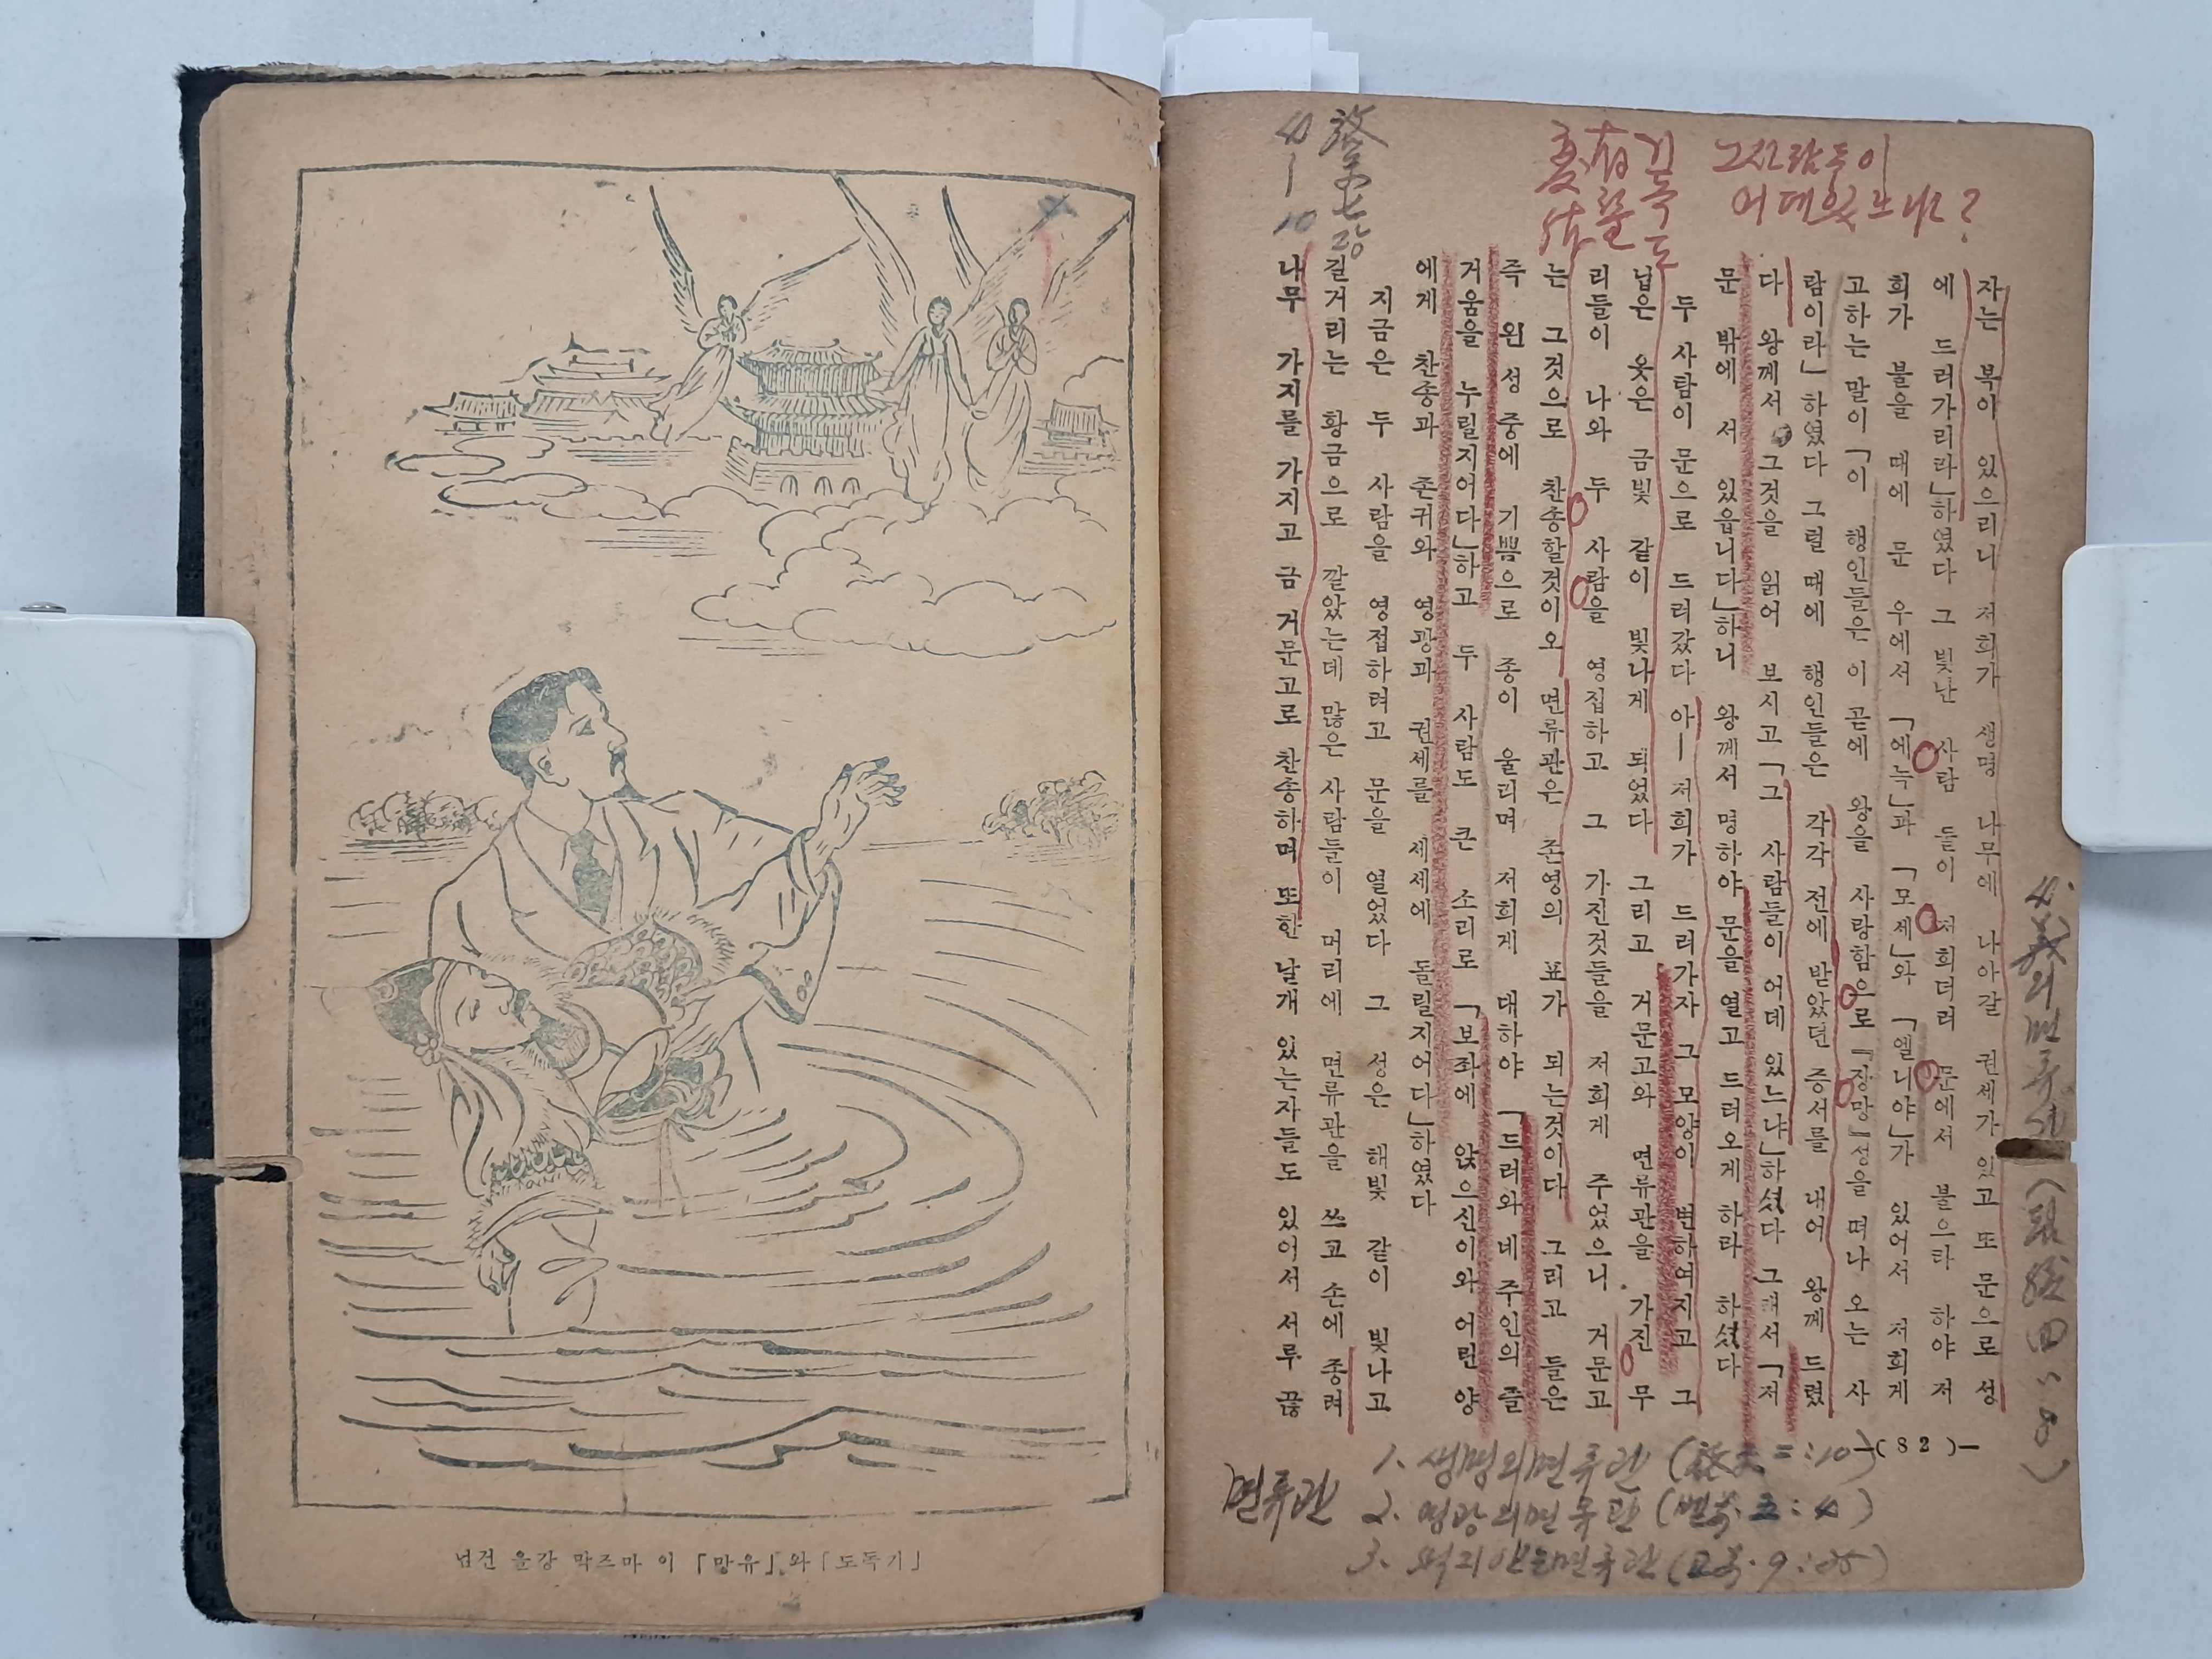 자는 복이 있으리니 저희가 생명 나무에 나아갈 권세가 있고 또 문으로 성
에 드러가리라」하였다 그 빛난 사람 들이 저희더러 문에서 불으라 하야 저
희가 불을 때에 문 우에서 「에녹」과 「모세」와 「엘니야」가 있어서 저희게
고하는 말이 「이 행인들은 이 곧에 왕을 사랑함으로 『장망』성을 떠나 오는 사
람이라」 하였다 그럴 때에 행인들은 각각 전에 받았던 증서를 내어 왕께 드렸
다 왕께서 그것을 읽어 보시고 「그 사람들이 어데 있느냐」하셨다 그래서 「저
문 밖에 서 있읍니다」하니 왕께서 명하야 문을 열고 드러오게 하라 하셨다
두 사람이 문으로 드러갔다 아ㅣ 저희가 드러가자 그 모양이 변하여지고 그
닙은 옷은 금빛 같이 빛나게 되었다 그리고 거문고와 면류관을 가진 무
리들이 나와 두 사람을 영접하고 그 가진것들을 저희게 주었으니 거문고
는 그것으로 찬송할것이오 면류관은 존영의 표가 되는것이다 그리고 들은
즉 왼 성중에 기쁨으로 종이 울리며 저희게 대하야 「드러와 네 주인의 즐
거움을 누릴지어다」하고 두 사람도 큰 소리로 「보좌에 앉으신이와 어린 양
에게 찬송과 존귀와 영광과 권세를 세세에 돌릴지어다」하였다
지금은 두 사람을 영접하려고 문을 열었다 그 성은 해빛 같이 빛나고
길거리는 황금으로 깔았는데 많은 사람들이 머리에 면류관을 쓰고 손에 종려
나무 가지를 가지고 금 거문고로 찬송하며 또한 날개 있는자들도 있어서 서루 끊
—( 82 )—
넘건 을강 막즈마 이 「망유」 와 「도독기」
그 사람들이
어데 있느냐?
4—10
면류관
1. 생명의 면류관 (二:10)
2. 영광의 면류관 (벧전 五:4)
3. 썩지 안는 면류관 (고전 9:25)
4. 義의 면류관 (四:8)